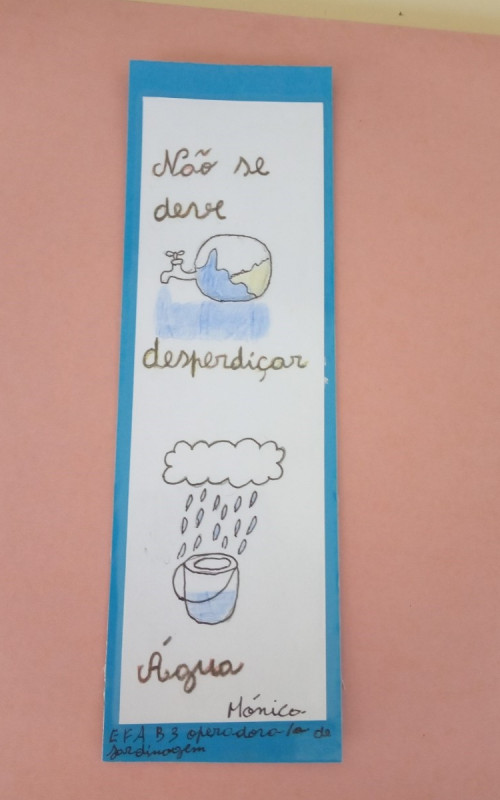 Não se
deve
desperdiçar
Água
Mónica
EFA B3 operadora/o de
jardinagem